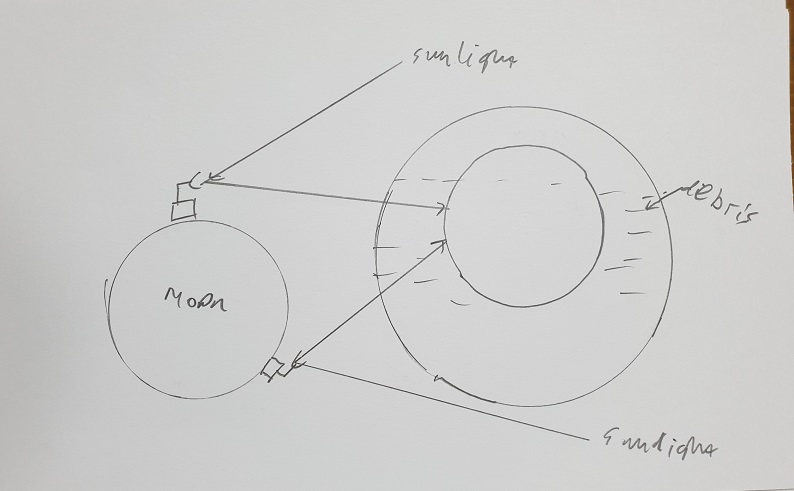 sunlight
debris
Moon
sunlight